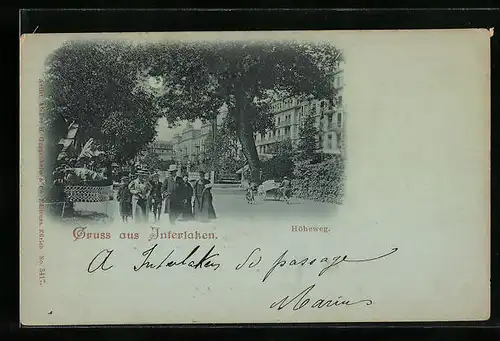 Gruss aus Interlaken.
Höheweg.
A Interlaken de passage
Marius